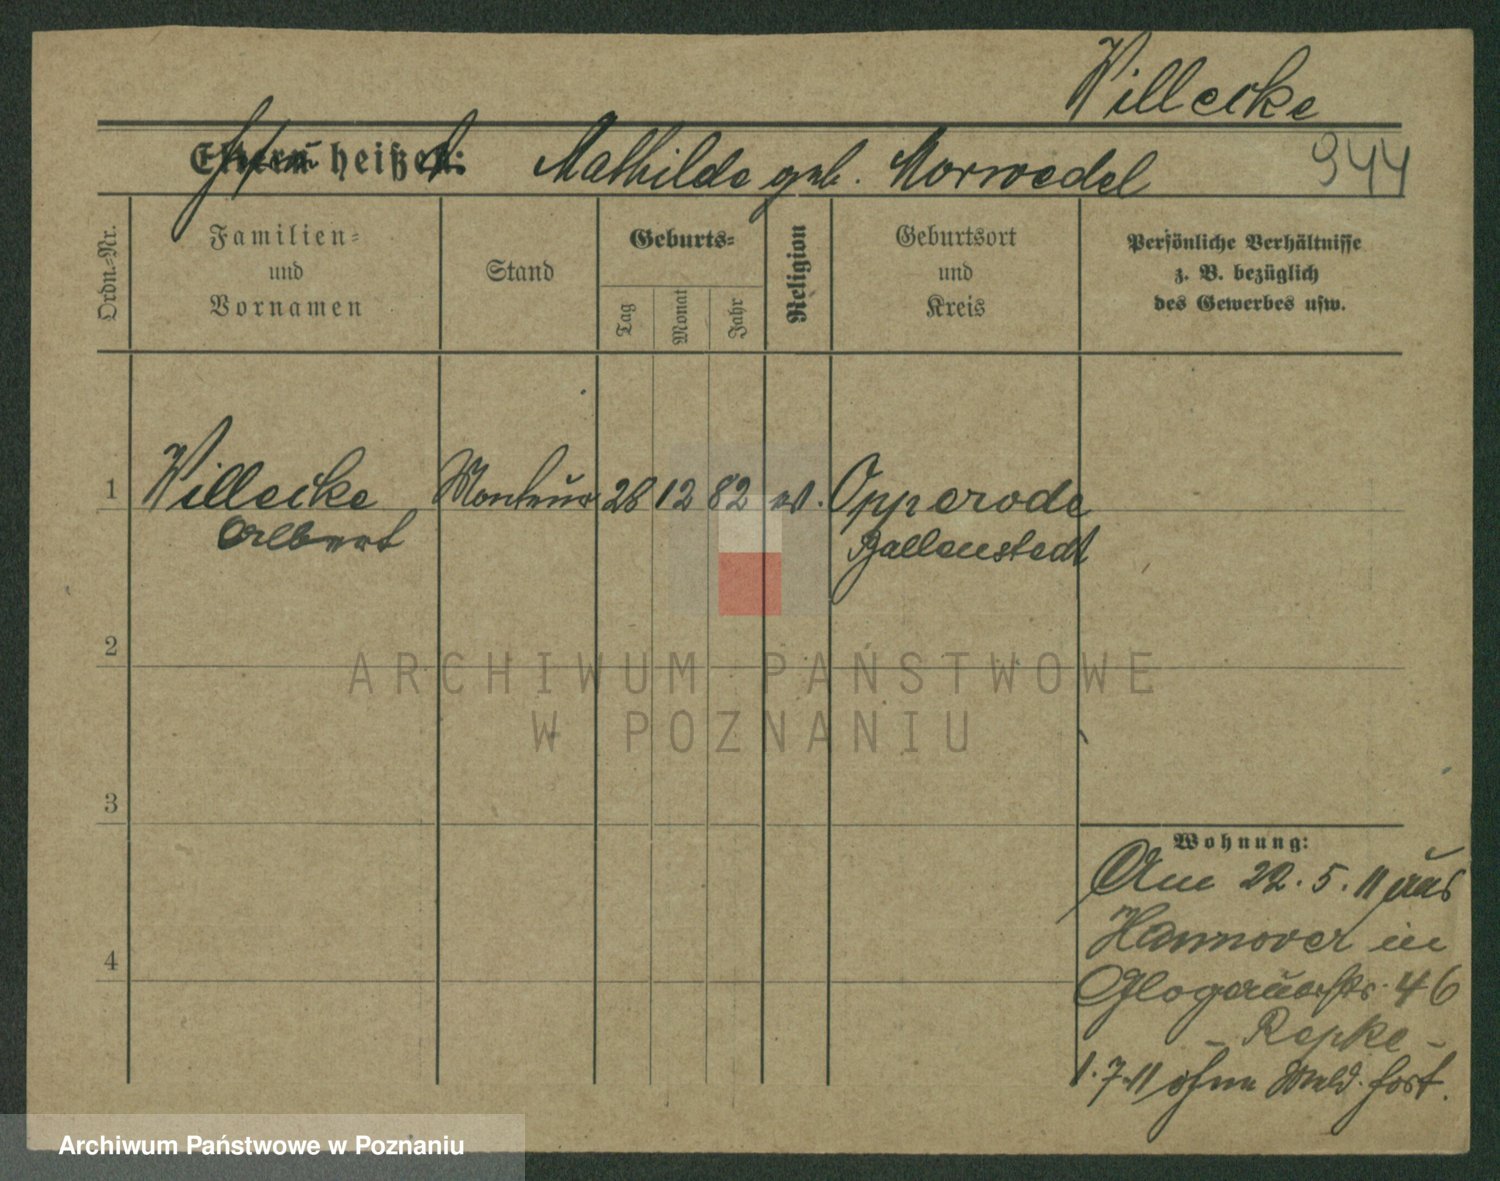 Willecke
Eltern heißen: Mathilde geb. Morwedel 944
Ordn.-Nr.
Familien-
und
Vornamen
Stand
Geburts-
Tag
Monat
Jahr
Religion
Geburtsort
und
Kreis
Persönliche Verhältnisse
z. B. bezüglich
des Gewerbes usw.
1 Willecke Monteur 28 12 82 ev. Opperode
Albert Ballenstedt
2
ARCHIWUM PAŃSTWOWE
W POZNANIU
3
Wohnung:
Am 22.5.11 aus
Hannover in
4
Glogauerstr. 46
- Repke -
1.7.11 ohne Meld. fort.
Archiwum Państwowe w Poznaniu